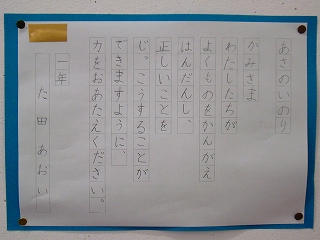 あさのいのり
かみさま
わたしたちが
よくものをかんがえ
はんだんし、
正しいことを
じ。こうすることが
できますように、
力をおあたえください。
一年
た田あおい